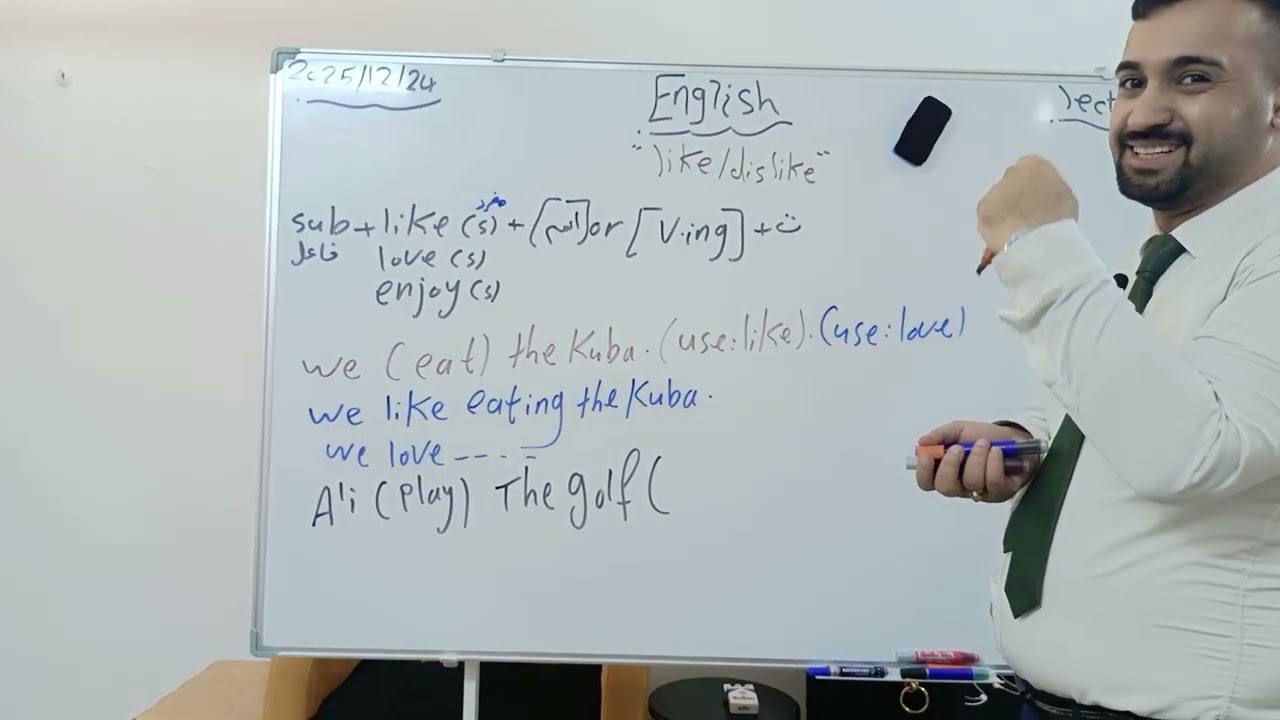 2025/12/24
English
lect
"like/dislike"
مفرد
sub + like (s) + [اسم] or [V.ing] + ت
فاعل love (s)
enjoy (s)
we (eat) the Kuba. (use: like). (use: love)
we like eating the Kuba.
we love ----
Ali (play) The golf (